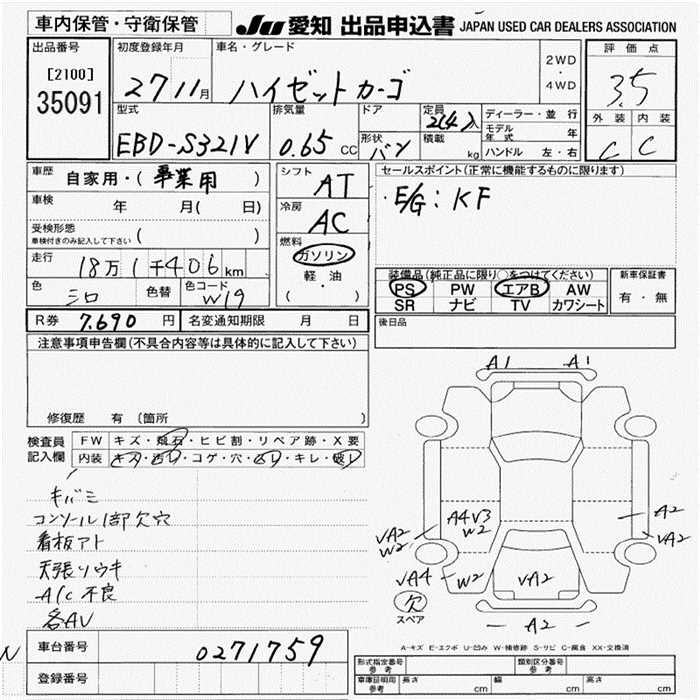 車内保管・守衛保管 JU 愛知 出品申込書 JAPAN USED CAR DEALERS ASSOCIATION
出品番号 初度登録年月 車名・グレード 評価点
[2100] 27 11月 ハイゼットカーゴ 2WD・4WD 3.5
35091
型式 排気量 ドア 定員 ディーラー・並行 外装 内装
EBD-S321V 0.65 CC 2(4)人 モデル年式 年 C C
形状 バン 積載 kg ハンドル 左・右
車歴 自家用・(事業用) シフト AT セールスポイント(正常に機能するものに限ります)
車検 年 月(日) 冷房 AC ・E/G:KF
受検形態 車検付きのみ記入して下さい ( ) 燃料 ガソリン
走行 18万1千406km 軽・油
装備品(純正品に限り○をつけてください) 新車保証書
色 シロ 色替 色コード W19 (・)
PS PW エアB AW 有・無
SR ナビ TV カワシート
R券 7,690円 名変通知期限 月 日 後日品
注意事項申告欄(不具合内容等は具体的に記入して下さい)
修復歴 有 〔箇所
検査員記入欄 FW キズ・飛石・ヒビ割・リペア跡・X要
内装 キズ・汚レ・コゲ・穴・凹レ・キレ・破レ
キバミ
コンソール1部欠穴
看板アト
天張リウキ
A/C不良
各AV
A1 A1
A2
VA2 W2 A4V3 W2 VA2
VA4 W2 VA2
欠 スペア
A2
A-キズ E-エクボ U-凹み W-補修跡 S-サビ C-腐食 XX-交換済
N 車台番号 0271759
登録番号
形式指定番号 参考 類別区分番号 参考
車庫証明用 参考 長さ cm 幅 cm 高さ cm